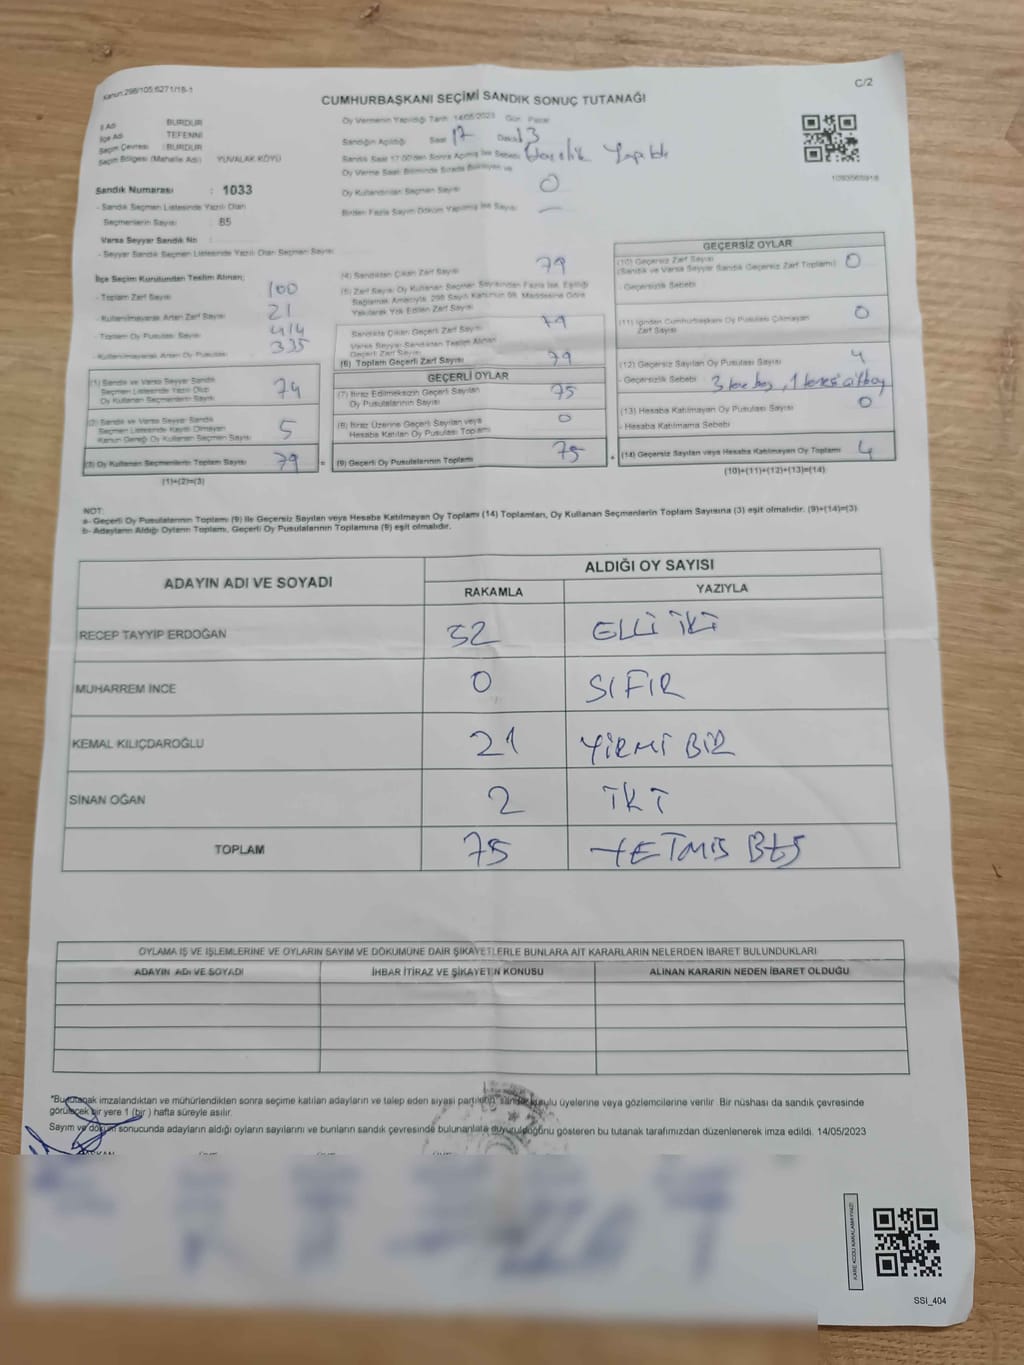 Kanun:298/105;6271/18-1
C/2
CUMHURBAŞKANI SEÇİMİ SANDIK SONUÇ TUTANAĞI
İl Adı : BURDUR
İlçe Adı : TEFENNİ
Seçim Çevresi : BURDUR
Seçim Bölgesi (Mahalle Adı) : YUVALAK KÖYÜ
Sandık Numarası : 1033
- Sandık Seçmen Listesinde Yazılı Olan
Seçmenlerin Sayısı : 85
Varsa Seyyar Sandık No :
- Seyyar Sandık Seçmen Listesinde Yazılı Olan Seçmen Sayısı :
Oy Vermenin Yapıldığı Tarih: 14/05/2023 Gün: Pazar
Sandığın Açıldığı Saat 17 Daka 13
Sandık Saat 17:00'den Sonra Açılmış İse Sebebi
Oy Verme Saati Bitiminde Sırada Bekleyen ve
Oy Kullandırılan Seçmen Sayısı 0
Birden Fazla Sayım Döküm Yapılmış İse Sayısı —
İlçe Seçim Kurulundan Teslim Alınan;
- Toplam Zarf Sayısı 100
- Kullanılmayarak Artan Zarf Sayısı 21
Toplam Oy Pusulası Sayısı 414
- Kullanılmayarak Artan Oy Pusulası 335
(1) Sandık ve Varsa Seyyar Sandık
Seçmen Listesinde Yazılı Olup
Oy Kullanan Seçmenlerin Sayısı 74
(2) Sandık ve Varsa Seyyar Sandık
Seçmen Listesinde Kayıtlı Olmayan
Kanun Gereği Oy Kullanan Seçmen Sayısı 5
(3) Oy Kullanan Seçmenlerin Toplam Sayısı 79
(1)+(2)=(3)
(4) Sandıktan Çıkan Zarf Sayısı 79
(5) Zarf Sayısı Oy Kullanan Seçmen Sayısından Fazla İse, Eşitliği
Sağlamak Amacıyla 298 Sayılı Kanunun 98. Maddesine Göre
Yakılarak Yok Edilen Zarf Sayısı
Sandıkta Çıkan Geçerli Zarf Sayısı 79
Varsa Seyyar Sandıktan Teslim Alınan
Geçerli Zarf Sayısı
(6) Toplam Geçerli Zarf Sayısı 79
GEÇERLİ OYLAR
(7) İtiraz Edilmeksizin Geçerli Sayılan
Oy Pusulalarının Sayısı 75
(8) İtiraz Üzerine Geçerli Sayılan veya
Hesaba Katılan Oy Pusulası Toplamı 0
= (9) Geçerli Oy Pusulalarının Toplamı 75
1093565918
GEÇERSİZ OYLAR
(10) Geçersiz Zarf Sayısı 0
(Sandık ve Varsa Seyyar Sandık Geçersiz Zarf Toplamı)
- Geçersizlik Sebebi
(11) İçinden Cumhurbaşkanı Oy Pusulası Çıkmayan
Zarf Sayısı 0
(12) Geçersiz Sayılan Oy Pusulası Sayısı 4
- Geçersizlik Sebebi 3 tane boş, 1 tanesi
(13) Hesaba Katılmayan Oy Pusulası Sayısı 0
- Hesaba Katılmama Sebebi
+ (14) Geçersiz Sayılan veya Hesaba Katılmayan Oy Toplamı 4
(10)+(11)+(12)+(13)=(14)
NOT:
a- Geçerli Oy Pusulalarının Toplamı (9) ile Geçersiz Sayılan veya Hesaba Katılmayan Oy Toplamı (14) Toplamları, Oy Kullanan Seçmenlerin Toplam Sayısına (3) eşit olmalıdır. (9)+(14)=(3)
b- Adayların Aldığı Oyların Toplamı, Geçerli Oy Pusulalarının Toplamına (9) eşit olmalıdır.
ADAYIN ADI VE SOYADI
ALDIĞI OY SAYISI
RAKAMLA YAZIYLA
RECEP TAYYİP ERDOĞAN 52 ELLİ İKİ
MUHARREM İNCE 0 SIFIR
KEMAL KILIÇDAROĞLU 21 YİRMİ BİR
SİNAN OĞAN 2 İKİ
TOPLAM 75 YETMİŞ BEŞ
OYLAMA İŞ VE İŞLEMLERİNE VE OYLARIN SAYIM VE DÖKÜMÜNE DAİR ŞİKAYETLERLE BUNLARA AİT KARARLARIN NELERDEN İBARET BULUNDUKLARI
ADAYIN ADI VE SOYADI İHBAR İTİRAZ VE ŞİKAYETİN KONUSU ALINAN KARARIN NEDEN İBARET OLDUĞU
*Bu tutanak imzalandıktan ve mühürlendikten sonra seçime katılan adayların ve talep eden siyasi partilerin, sandık kurulu üyelerine veya gözlemcilerine verilir. Bir nüshası da sandık çevresinde
görülecek bir yere 1 (bir ) hafta süreyle asılır.
Sayım ve döküm sonucunda adayların aldığı oyların sayılarını ve bunların sandık çevresinde bulunanlara duyurulduğunu gösteren bu tutanak tarafımızdan düzenlenerek imza edildi. 14/05/2023
KARE KODU KARALAMAYINIZ!
SSİ_404